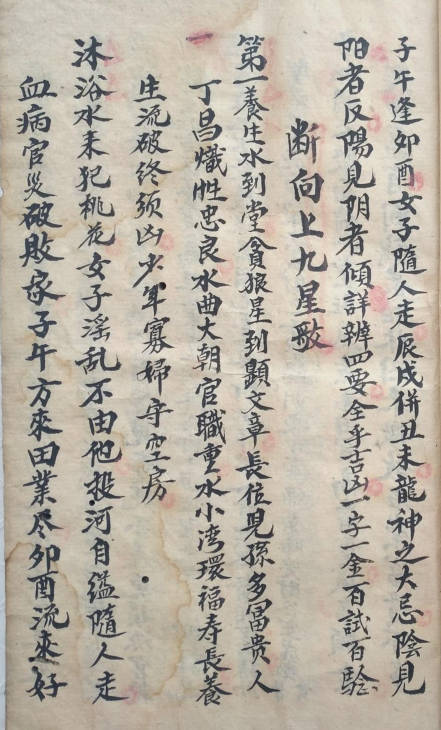 子午逢卯酉女子隨人走辰戌併丑未龍神之大忌陰見
阳者反陽見阴者傾詳辨四要全乎吉凶一字一金百試百驗
断向上九星歌
第一養生水到堂貪狼星到顕文章長位児孫多冨贵人
丁昌熾性忠良水曲大朝官職重水小湾環福寿長養
生流破终须凶少年寡婦守空房
沐浴水来犯桃花女子淫乱不由他投河自縊隨人走
血病官災破敗家子午方來田業尽卯酉流來好